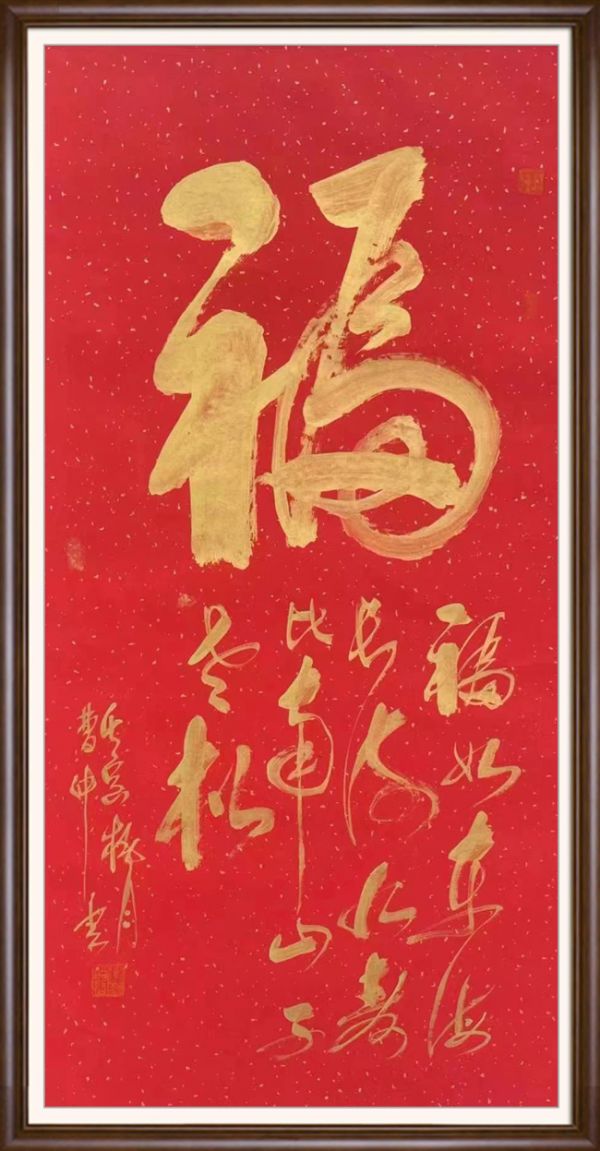 福
福如东海
长流水寿
比南山不
老松
月
曹书